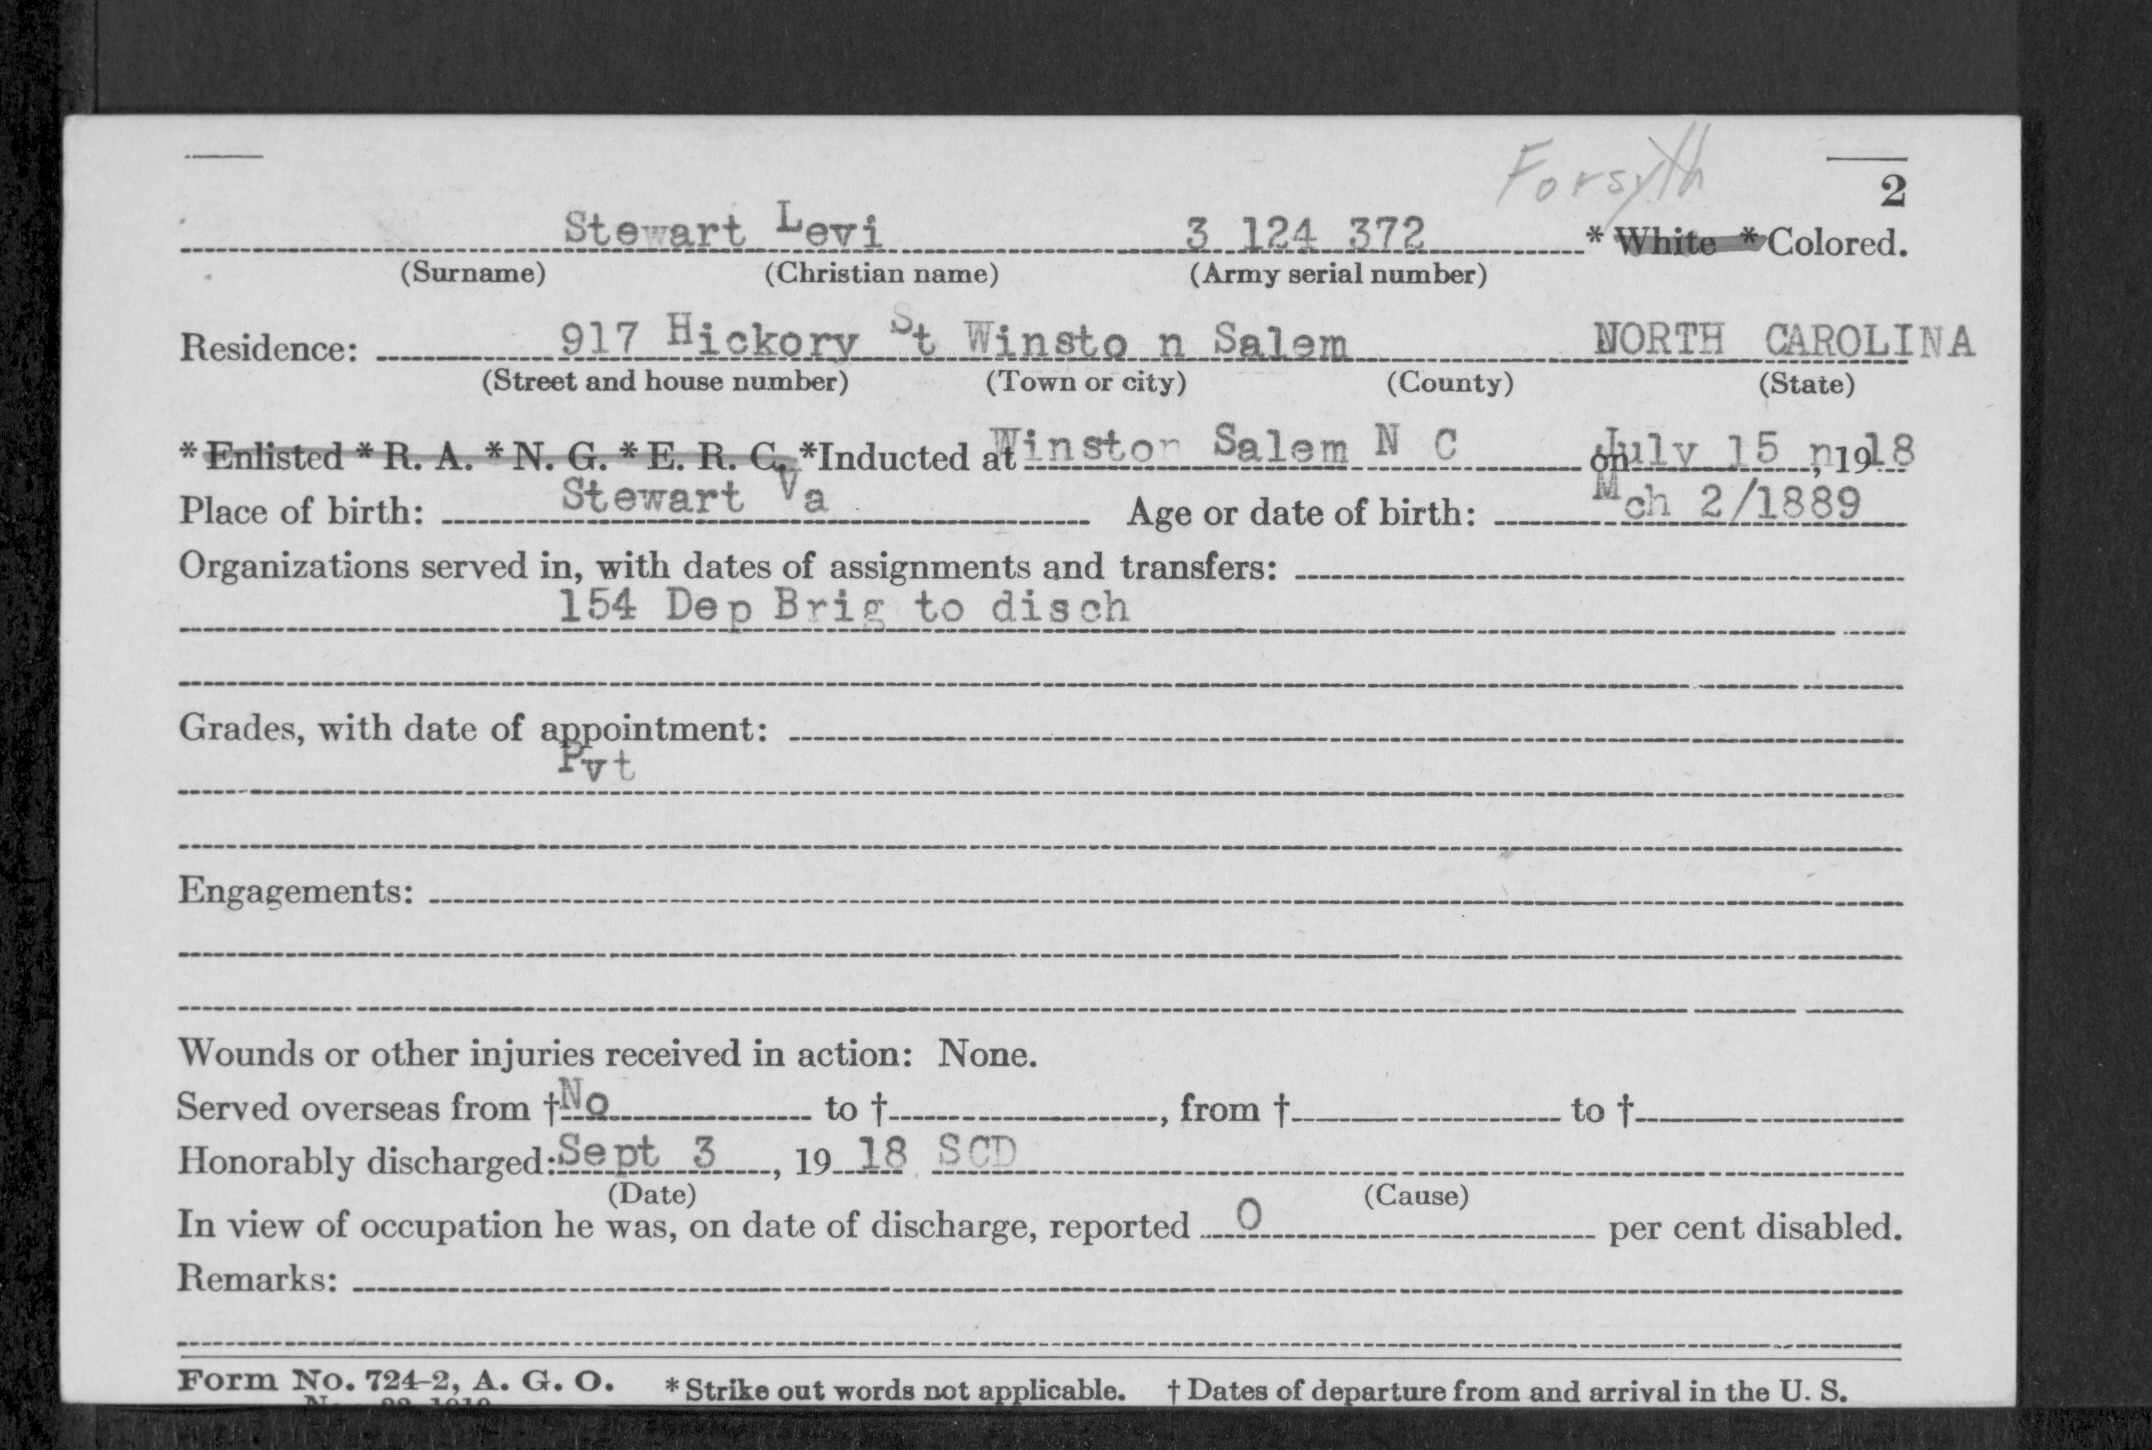 Forsyth
2
Stewart Levi 3 124 372 * White * Colored.
(Surname) (Christian name) (Army serial number)
Residence: 917 Hickory St Winsto n Salem NORTH CAROLINA
(Street and house number) (Town or city) (County) (State)
* Enlisted * R. A. * N. G. * E. R. C. *Inducted at Winston Salem N C on July 15 n, 1918
Place of birth: Stewart Va Age or date of birth: Mch 2/1889
Organizations served in, with dates of assignments and transfers:
154 Dep Brig to disch
Grades, with date of appointment:
Pvt
Engagements:
Wounds or other injuries received in action: None.
Served overseas from † No to †, from † to †
Honorably discharged: Sept 3, 19 18 SCD
(Date) (Cause)
In view of occupation he was, on date of discharge, reported 0 per cent disabled.
Remarks:
Form No. 724-2, A. G. O. * Strike out words not applicable. † Dates of departure from and arrival in the U. S.